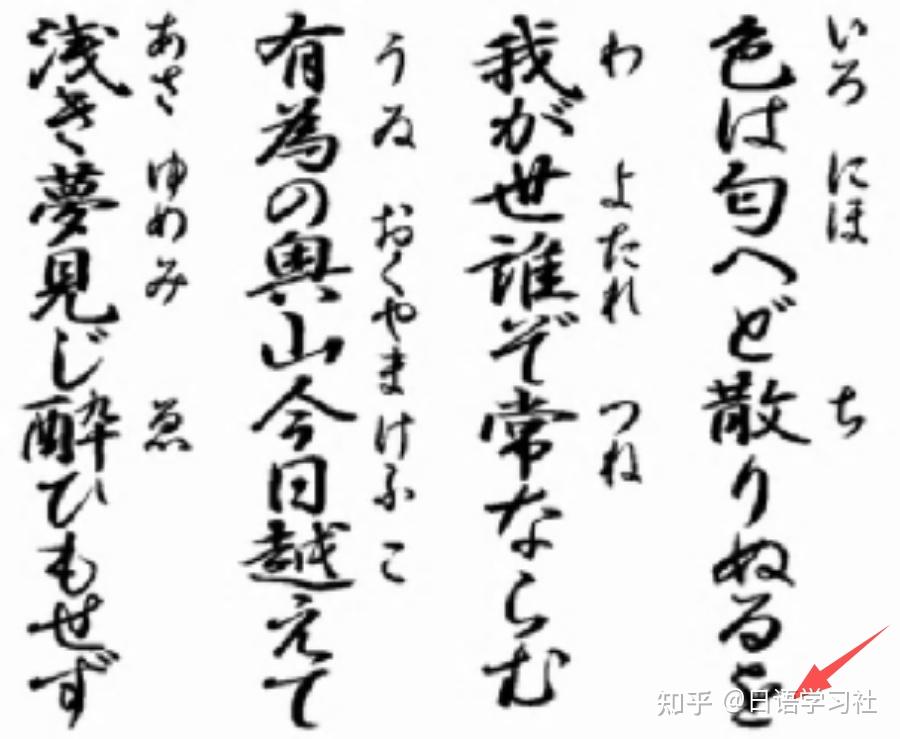 いろ にほ ち
色は匂へど散りぬるを
わ よたれ つね
我が世誰ぞ常ならむ
うゐ おくやまけふこ
有為の奥山今日越えて
あさ ゆめみ ゑ
浅き夢見じ酔ひもせず
知乎 @日语学习社